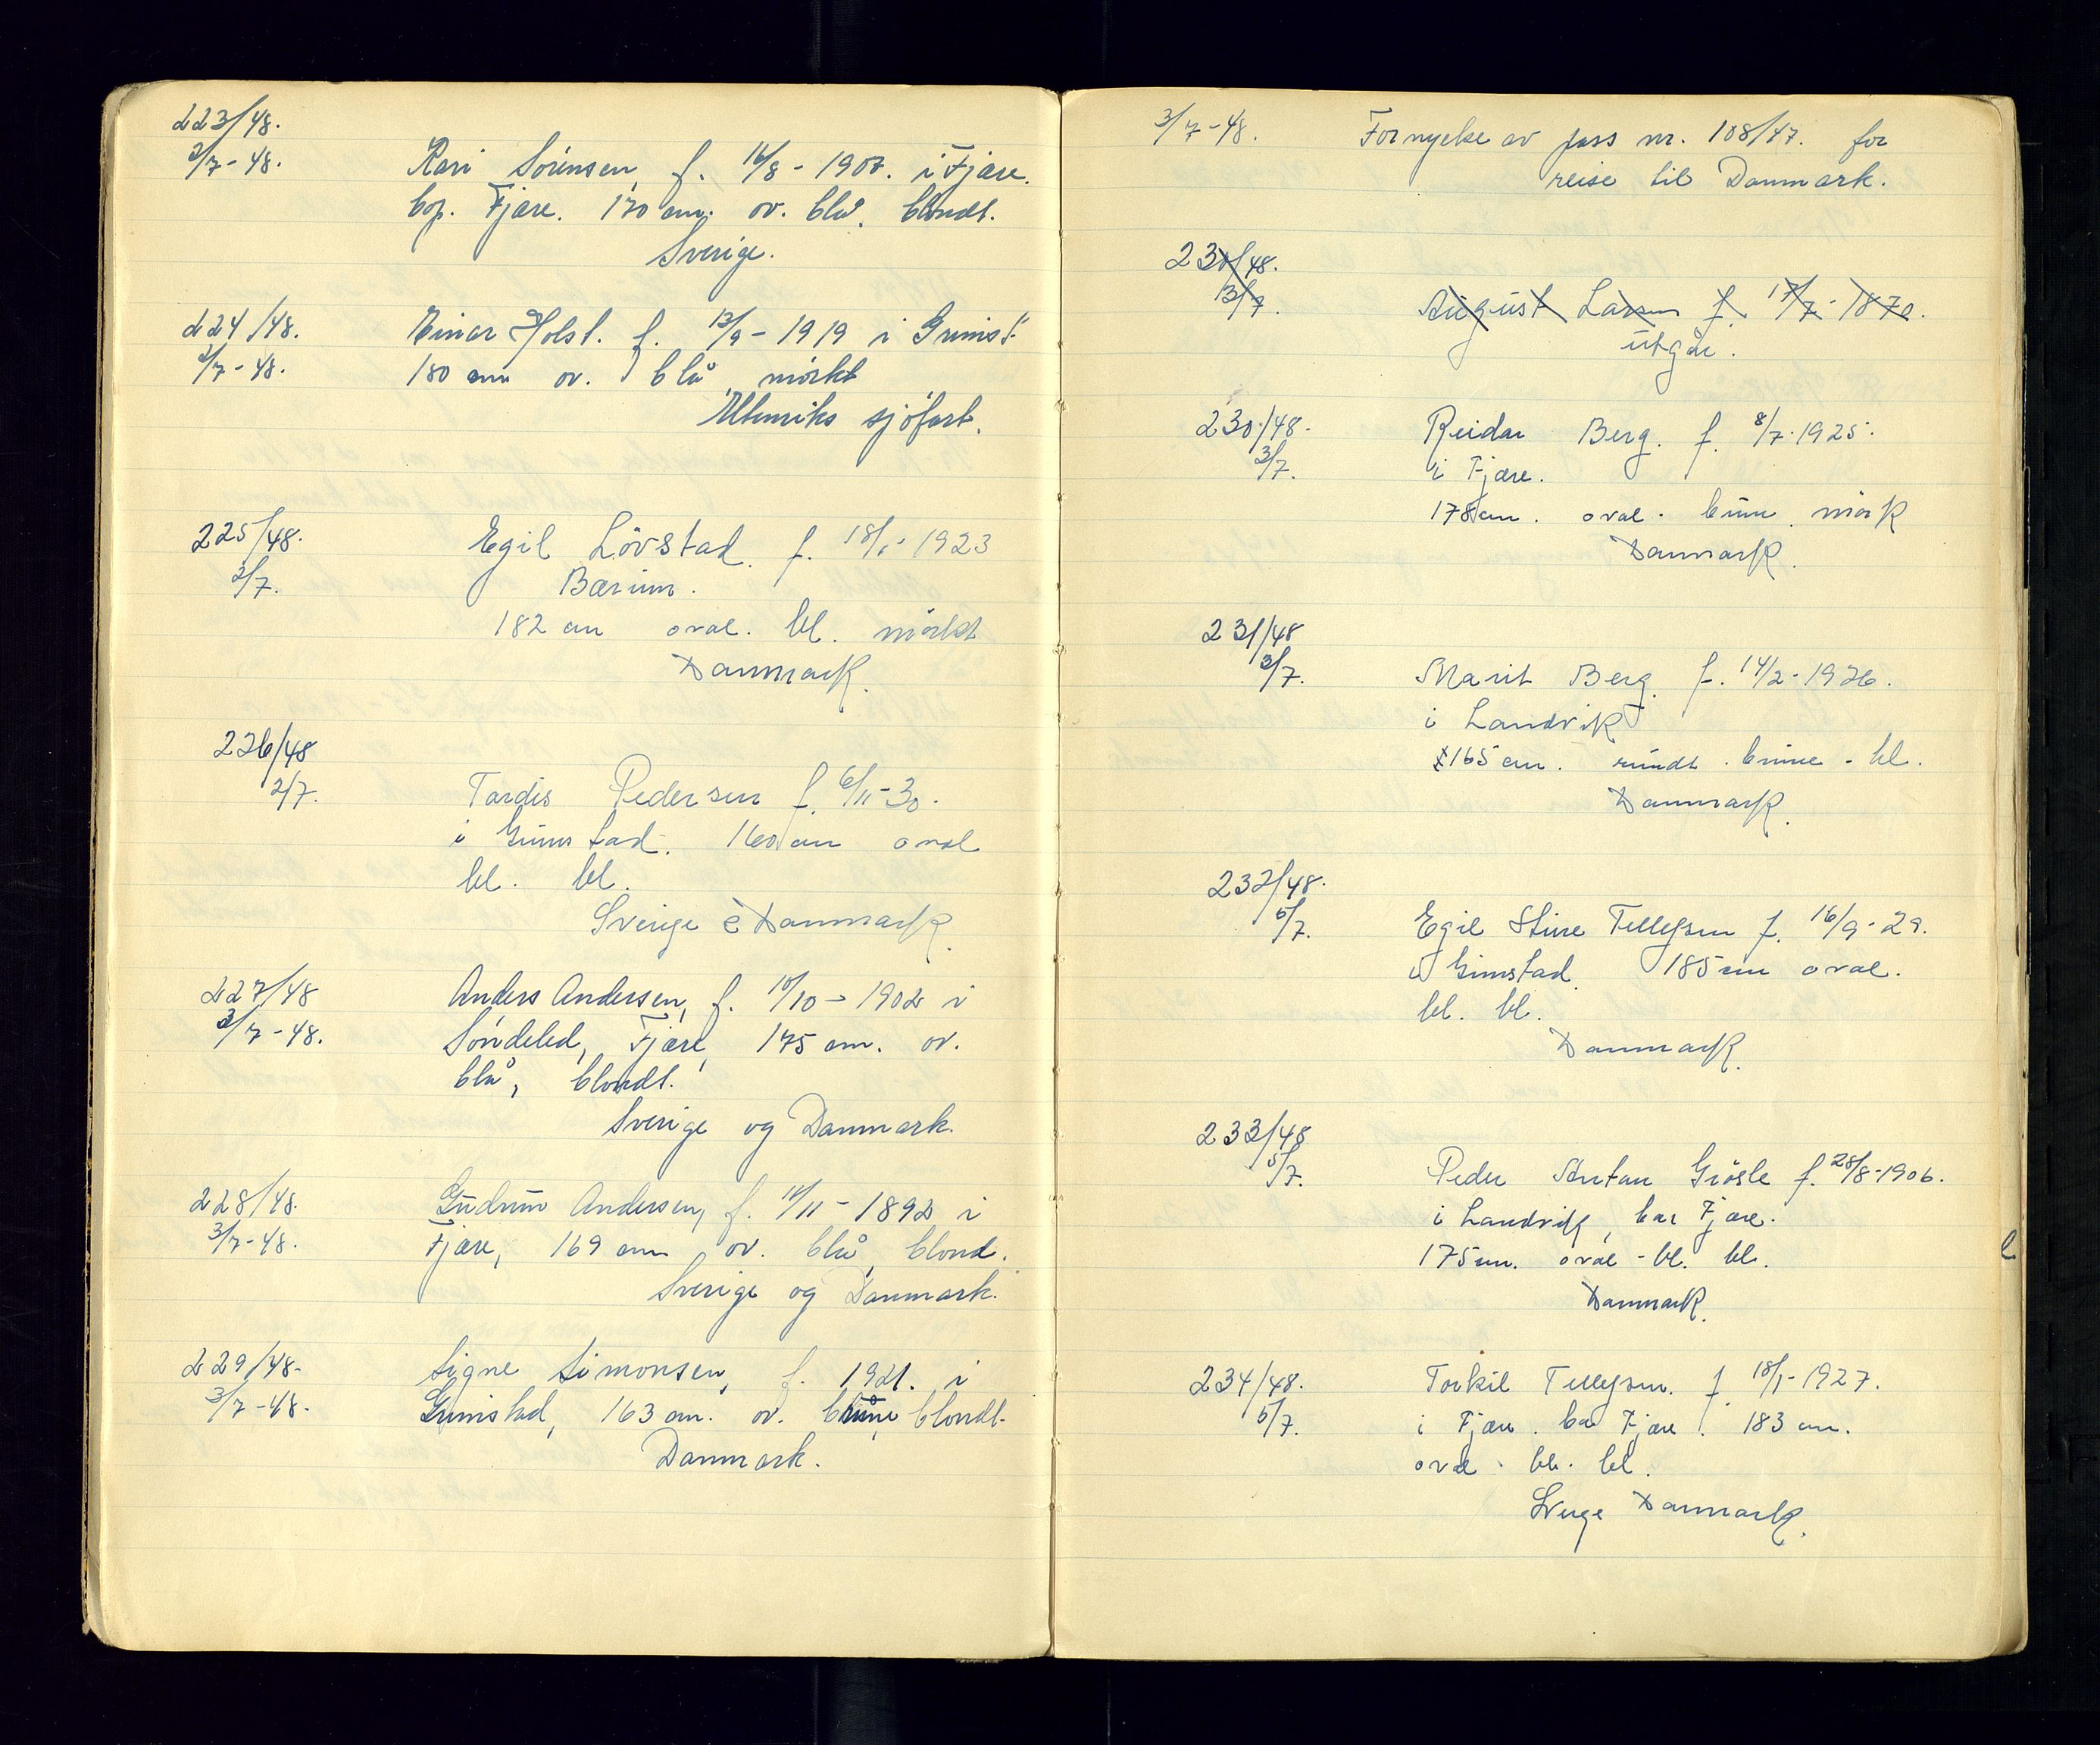 223/48.
2/7-48. Kari Sörensen, f. 16/8-1907. i Fjære.
bop. Fjære. 170 cm. ov. blå, blondt.
Sverige.
224/48. Einar Holst. f. 13/9-1919 i Grimst.
2/7-48. 180 cm ov. blå, mörkt
Utenriks sjöfart.
225/48. Egil Lövstad. f. 18/1-1923
2/7. Bærum.
182 cm oval. bl. mörkt
Danmark.
226/48
2/7. Tordis Pedersen f. 6/11-30.
i Grimstad. 160 cm oval
bl. bl.
Sverige & Danmark.
227/48 Anders Andersen, f. 10/10-1902 i
3/7-48. Söndeled, Fjære, 175 cm. ov.
blå, blondt.
Sverige og Danmark.
228/48. Gudrun Andersen, f. /11-1892 i
3/7-48. Fjære, 169 cm ov. blå, blond.
Sverige og Danmark.
229/48. Signe Simonsen, f. 1921. i
3/7-48. Grimstad, 163 cm. ov. blondt.
Danmark.
3/7-48. Fornyelse av pass nr. 108/47. for
reise til Danmark.
230/48.
3/7. August Larsen f. 17/7-1870.
utgår.
230/48. Reidar Berg. f. 8/7-1925.
3/7. i Fjære.
178 cm. oval. brune. mörk
Danmark.
231/48
3/7. Marit Berg. f. 14/2-1926.
i Landvik
165 cm. rundt. brune - bl.
Danmark.
232/48.
5/7. Egil Sture Tellefsen f. 16/9-29.
i Grimstad. 185 cm oval.
bl. bl.
Danmark.
233/48
5/7. Peder Antan Grösle f. 28/8-1906.
i Landvik, bor Fjære.
175 cm. oval - bl. bl.
Danmark.
234/48. Torkil Tellefsen. f. 18/1-1927.
5/7. i Fjære. bor Fjære. 183 cm.
oval. bl. bl.
Sverige Danmark.